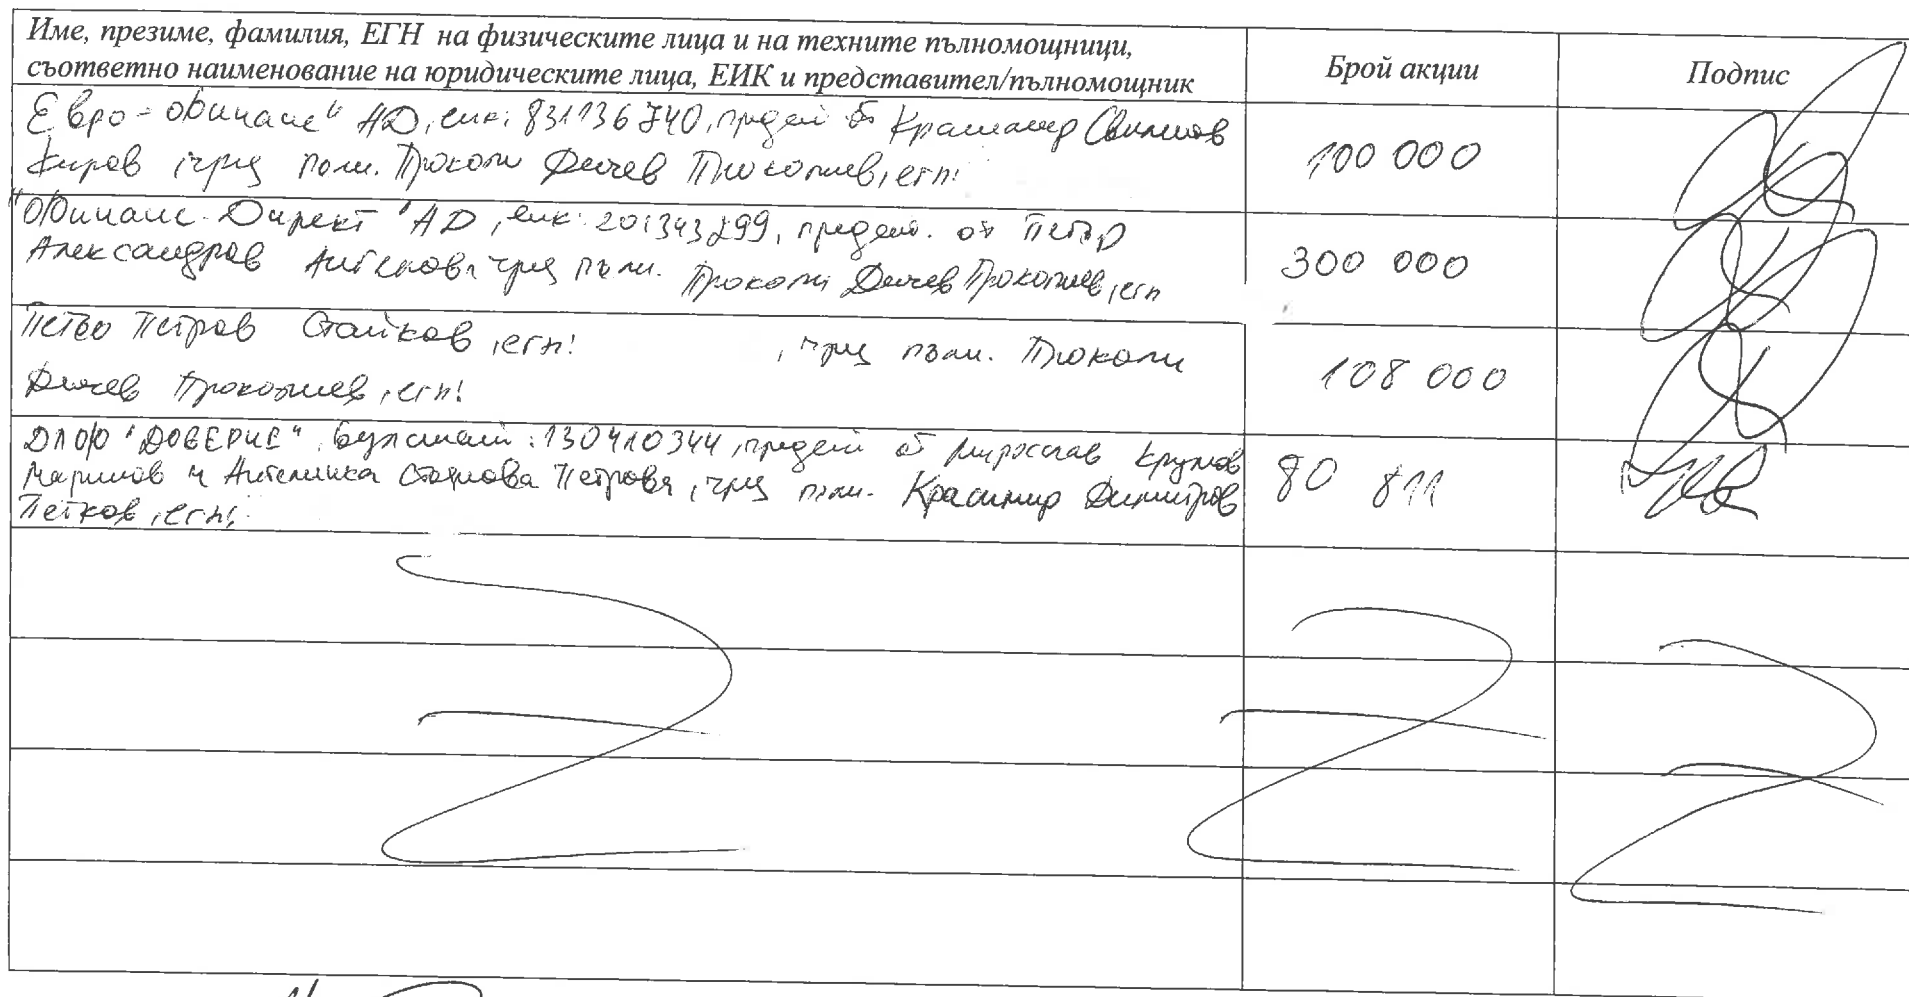 Име, презиме, фамилия, ЕГН на физическите лица и на техните пълномощници,
съответно наименование на юридическите лица, ЕИК и представител/пълномощник
Брой акции
Подпис
Евро-финанс" АД, еик: 831136740, предст от Свиленов
Киров, чрез пълн. Прокопи Дечев Прокопиев, егн:
100 000
"Финанс Директ" АД, еик: 201343299, предст. от Петър
Александров Ангелов чрез пълн. Прокопи Дечев Прокопиев, егн
300 000
Петров Стайков, егн: , чрез пълн. Прокопи
Дечев Прокопиев, егн:
108 000
ДПФ "ДОВЕРИЕ", Булстат: 130410344, предст от Мирослав Крумов
Маринов и Ангелинка Петрова, чрез пълн. Красимир Димитров
Петков, егн:
80 811